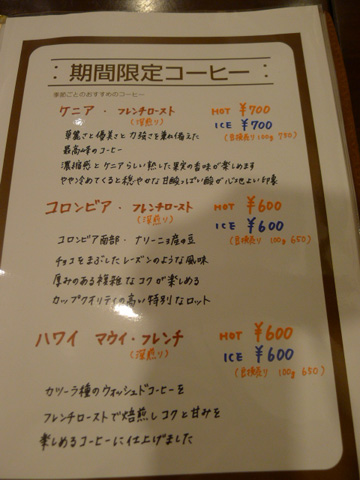 期間限定コーヒー
季節ごとのおすすめのコーヒー
ケニア・フレンチロースト HOT ¥700
(深煎り) ICE ¥700
華麗さと優美さと力強さを兼ね備えた (豆挽売り 100g 750)
最高峰のコーヒー
濃縮感とケニアらしい熟した果実の香味が楽しめます
やや冷めてくると穏やかな甘酸っぱい酸が心地よい印象
コロンビア・フレンチロースト HOT ¥600
(深煎り) ICE ¥600
コロンビア南部・ナリーニョ産の豆 (豆挽売り 100g 650)
チョコをまぶしたレーズンのような風味
厚みのある複雑なコクが楽しめる
カップクオリティの高い特別なロット
ハワイ マウイ・フレンチ HOT ¥600
(深煎り) ICE ¥600
(豆挽売り 100g 650)
カツーラ種のウォッシュドコーヒーを
フレンチローストで焙煎しコクと甘みを
楽しめるコーヒーに仕上げました